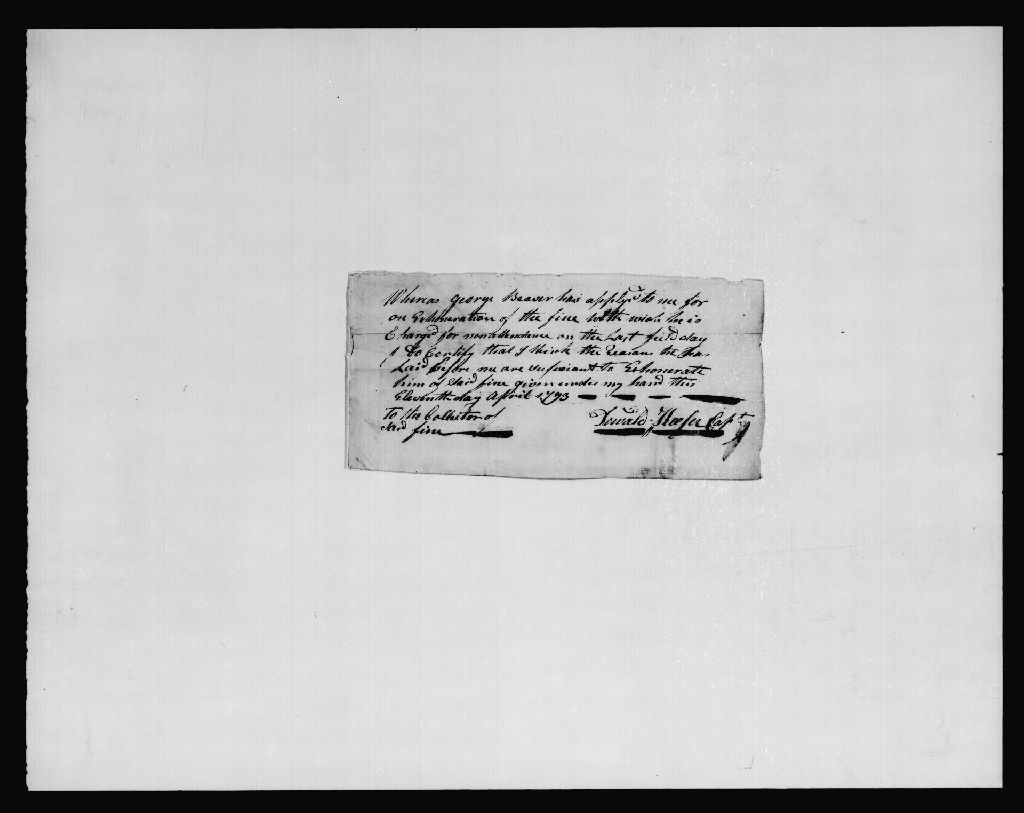 Whereas George Beaver has applyd to me for
an Exhoneration of the fine with wich he is
Charged for nonattendence on the Last field day
I Do Certify that I think the Reasons he has
Laid before me are sufisiant to Exhonerate
him of Said fine given under my hand this
Eleventh day April 1793
to the Collector of
Said fine
Capt